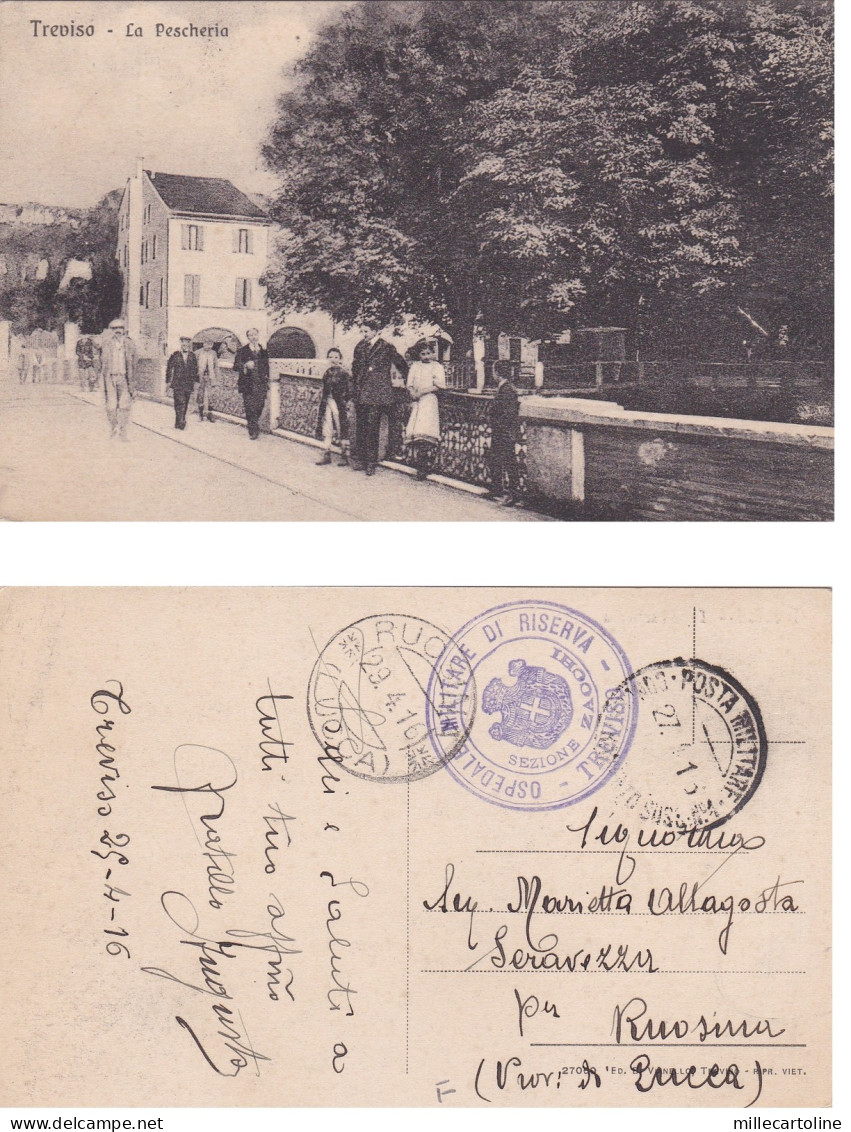 Treviso - La Pescheria
Treviso 25-4-16
e Saluti a
tutti tuo affmo
fratello
Augusto
RUO
29.4.16
(LUCCA)
OSPEDALE MILITARE DI RISERVA - TREVISO -
SEZIONE ZANOOHI
POSTA MILITARE
27
Signorina
Sig. Marietta Altagosta
Seravezza
per Ruosina
(Prov: di Lucca)
27000 ED. TREVISO - RIPR. VIET.
millecartoline